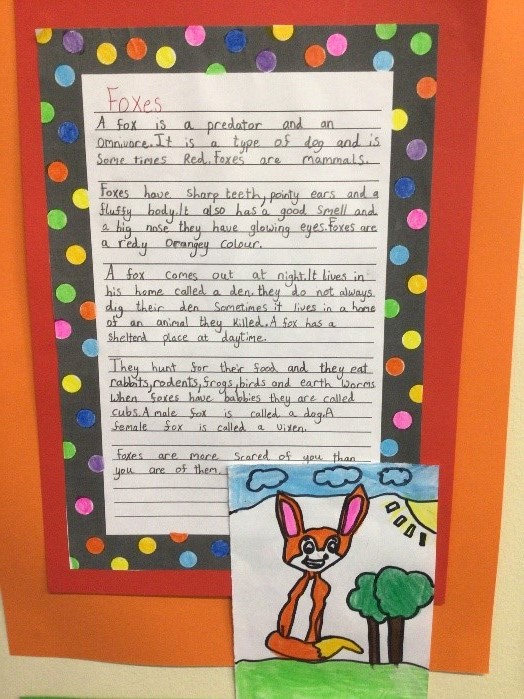 Foxes
A fox is a predator and an
Omnivore. It is a type of dog and is
Some times Red. Foxes are mammals.
Foxes have sharp teeth, pointy ears and a
fluffy body. It also has a good smell and
a big nose they have glowing eyes. Foxes are
a redy orangey colour.
A fox comes out at night. It lives in
his home called a den. they do not always
dig their den Sometimes it lives in a home
of an animal they killed. A fox has a
shelterd place at daytime.
They hunt for their food and they eat
rabbits, rodents, frogs, birds and earth worms
when foxes have babbies they are called
cubs. A male fox is called a dog. A
female fox is called a vixen.
Foxes are more scared of you than
you are of them.